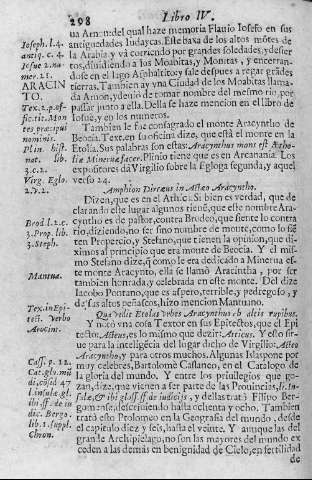 298 Libro IV.
ua Arnon: del qual haze memoria Flauio Iosefo en sus
antiguedades Iudaycas. Este baxa de los altos mótes de
la Arabia y vá corriendo por grandes soledades, y desier-
tos, diuidiendo a los Moabitas, y Monitas, y encerran-
dose en el lago Asphaltite: y sale despues a regar grādes
tierras. Tambien ay vna Ciudad de los Moabitas llama
da Arnon, y deuio de tomar nombre del mesmo rio, por
passar junto a ella. Della se haze mencion en el libro de
Iosue, y en los numeros.
Tambien le fue consagrado el monte Aracyntho de
Beocia. Text. en su oficina dize, que está el monte en la
Etolia. Sus palabras son estas: Aracynthus mons est Aetho-
liæ Mineruæ sacer. Plinio tiene que es en Arcanania. Los
expositores dā Virgilio sobre la Egloga segunda, y aquel
verso 24.
Amphion Dircæus in Actæo Aracyntho.
Dizen, que es en el Athica. Si bien es verdad, que de
clarando este lugar algunos tienē, que este nombre Ara-
cyntho es de pastor, contra Brodeo, que siente lo contra
rio, diziendo, no ser sino nombre de monte, como lo siē
ten Propercio, y Stefano, que tienen la opinion, que di-
ximos al principio que era monte de Beocia. Y el mis-
mo Stefano dize, q̄ como le era dedicado a Minerua es-
te monte Aracynto, ella se llamò Aracintha, por ser
tambien honrada, y celebrada en este monte. Del dize
Iacobo Pontano, que es aspero, terrible, y pedregoso, y
de sus altos peñascos, hizo mencion Mantuano.
Y notò vna cosa Textor en sus Epitectos, que el Epi
tecto: Acteus, es lo mismo que dezir: Atticus. Y esto sir-
ue para la inteligēcia del lugar dicho de Virgilio: Acteo
Aracyntho, y para otros muchos. Algunas Islas pone por
muy celebres, Bartolome Cassaneo, en el Catalogo de
la gloria del mundo. Y entre los priuilegios que go-
zan, dize, que vienen a ser parte de las Prouincias,
y dellas tratò Filipo Ber-
gomense, descriuiendo hasta ochenta y ocho. Tambien
trata esto Ptolomeo en la Geografia del mundo, desde
el capitulo diez y seis, hasta el veinte. Y aunque las del
grande Archipielago, no son las mayores del mundo ex
ceden a las demás en benignidad de Cielo, en fertilidad
de
Ioseph. l. 4.
antiq. c. 4.
Iosue 2. nu-
mer. 21.
ARACIN
TO.
Tex. 2. p. of-
fic. tit. Mon-
tes præcipui
nominis.
Plin. hist.
nat. lib.
3. c. 2.
Virg. Eglo.
2. v. 2.
Brod. l. 2. c.
3. Prop. lib.
3. Steph.
Mantuæ.
Tex. in Epi-
tect. Verbo
Aracint.
Cass. p. 12.
Cat. glo. mũ